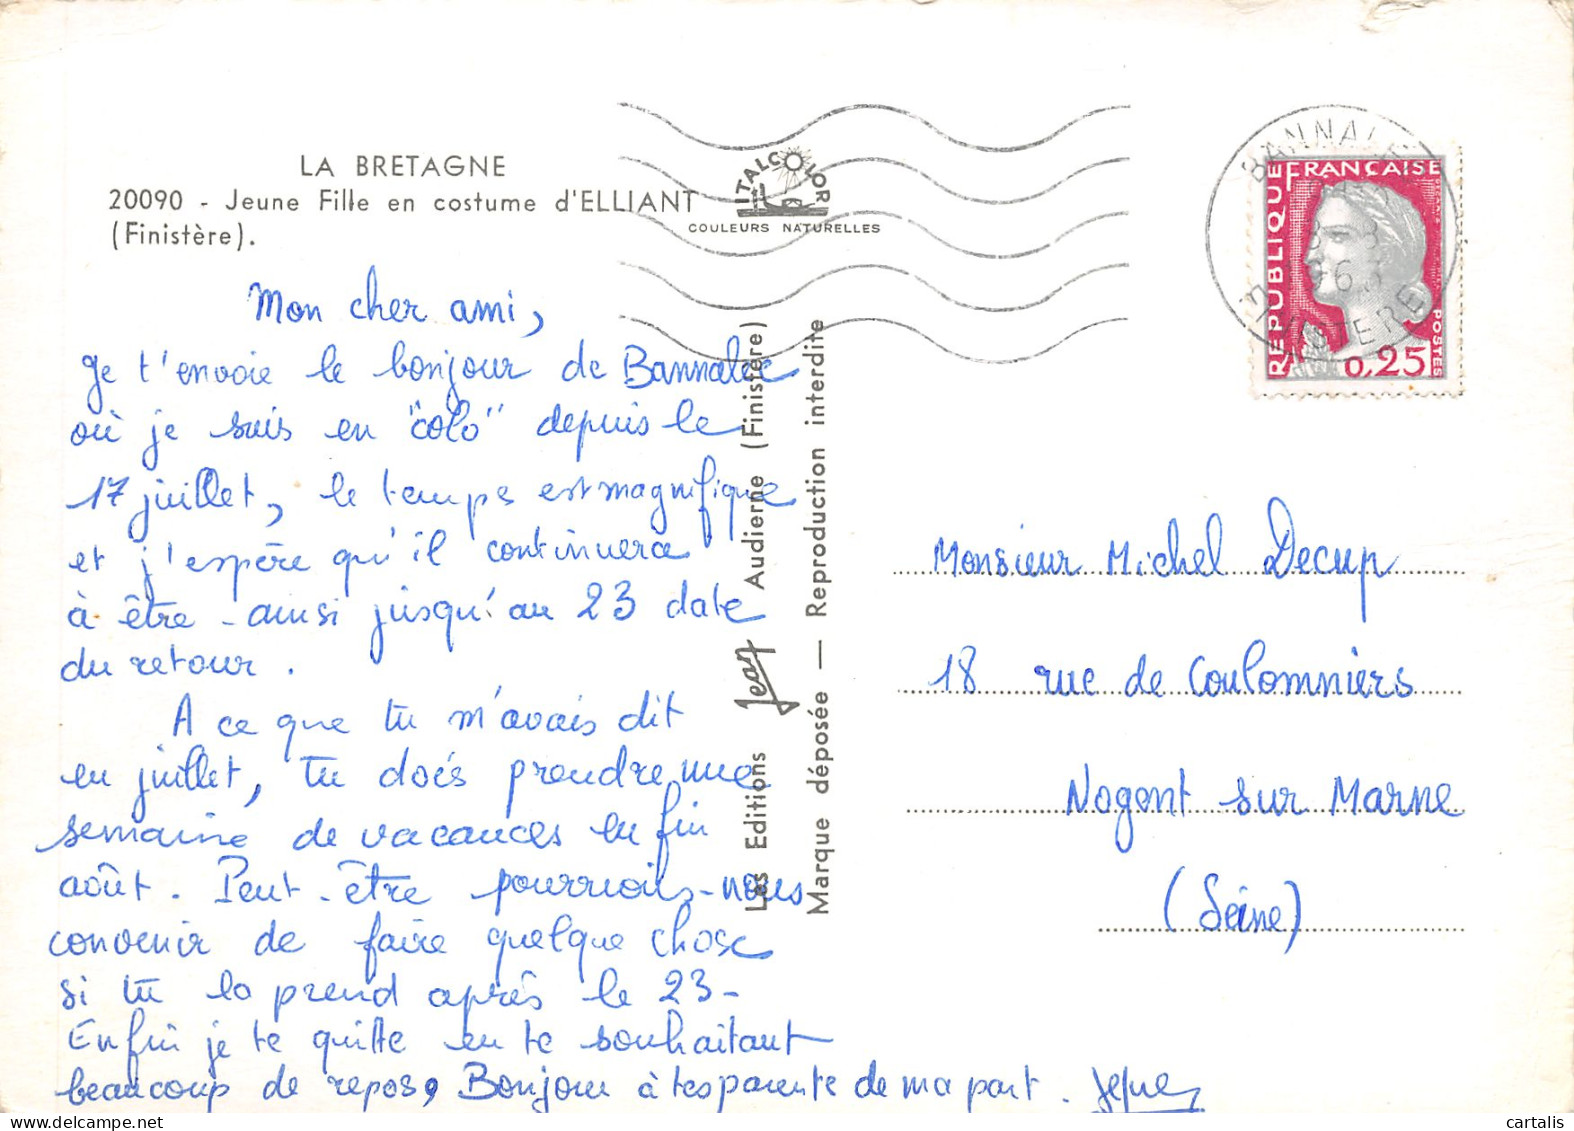 LA BRETAGNE
20090 - Jeune Fille en costume d'ELLIANT
(Finistère).
ITALCOLOR
COULEURS NATURELLES
BANNALEC
8-8
1963
FINISTERE
REPUBLIQUE FRANÇAISE
POSTES
0,25
Mon cher ami,
je t'envoie le bonjour de Bannalec
où je suis en "colo" depuis le
17 juillet, le temps est magnifique
et j'espère qu'il continuera
à être - ainsi jusqu'au 23 date
du retour.
A ce que tu m'avais dit
en juillet, tu dois prendre une
semaine de vacances en fin
août. Peut-être pourrions-nous
convenir de faire quelque chose
si tu la prend après le 23-
Enfin je te quitte en te souhaitant
beaucoup de repos, Bonjour à tes parente de ma part.
Les Editions Jean Audierne (Finistère)
Marque déposée — Reproduction interdite
Monsieur Michel Decup
18 rue de Coulommiers
Nogent sur Marne
(Seine)
cartalis